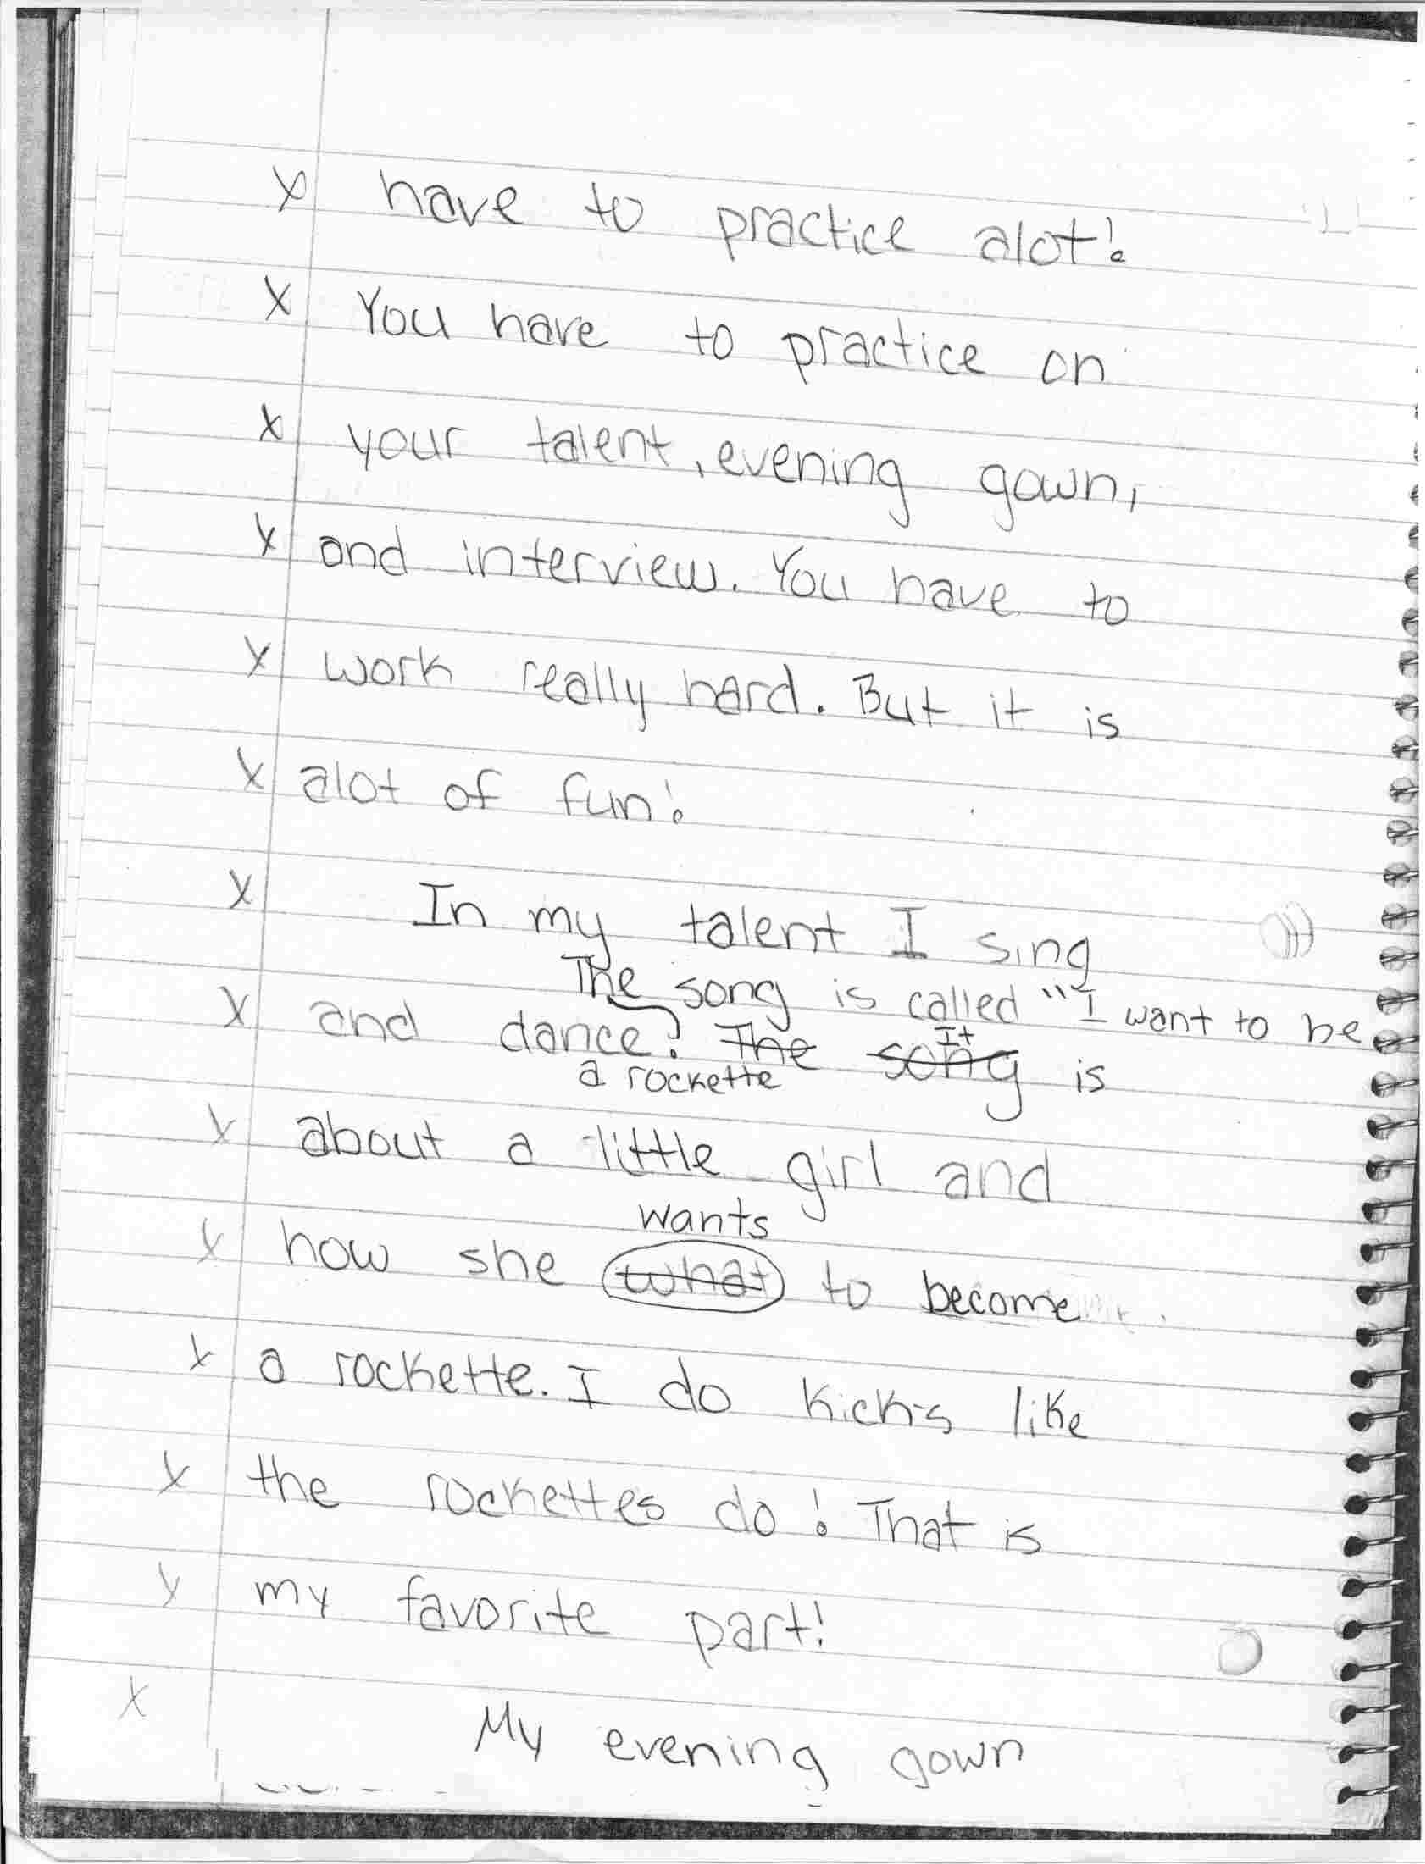 X have to practice alot!
X You have to practice on
X your talent, evening gown,
X and interview. You have to
X work really hard. But it is
X alot of fun!
X In my talent I sing
The song is called "I want to be
X and dance! The song It is
a rockette
X about a little girl and
wants
X how she what to become
X a rockette. I do kicks like
X the rockettes do! That is
X my favorite part!
X My evening gown